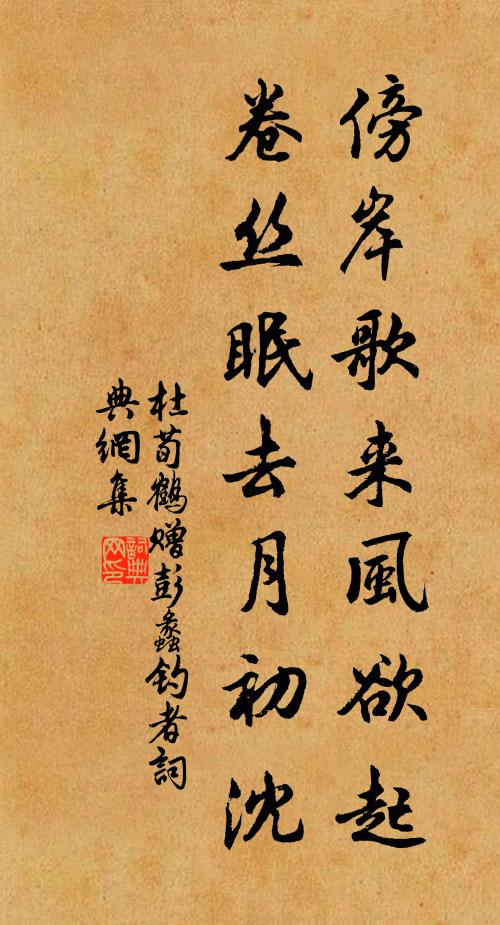 傍岸歌来風欲起
卷丝眠去月初沈
杜荀鶴贈彭蠡钓者詞
典網集
詞典
网印